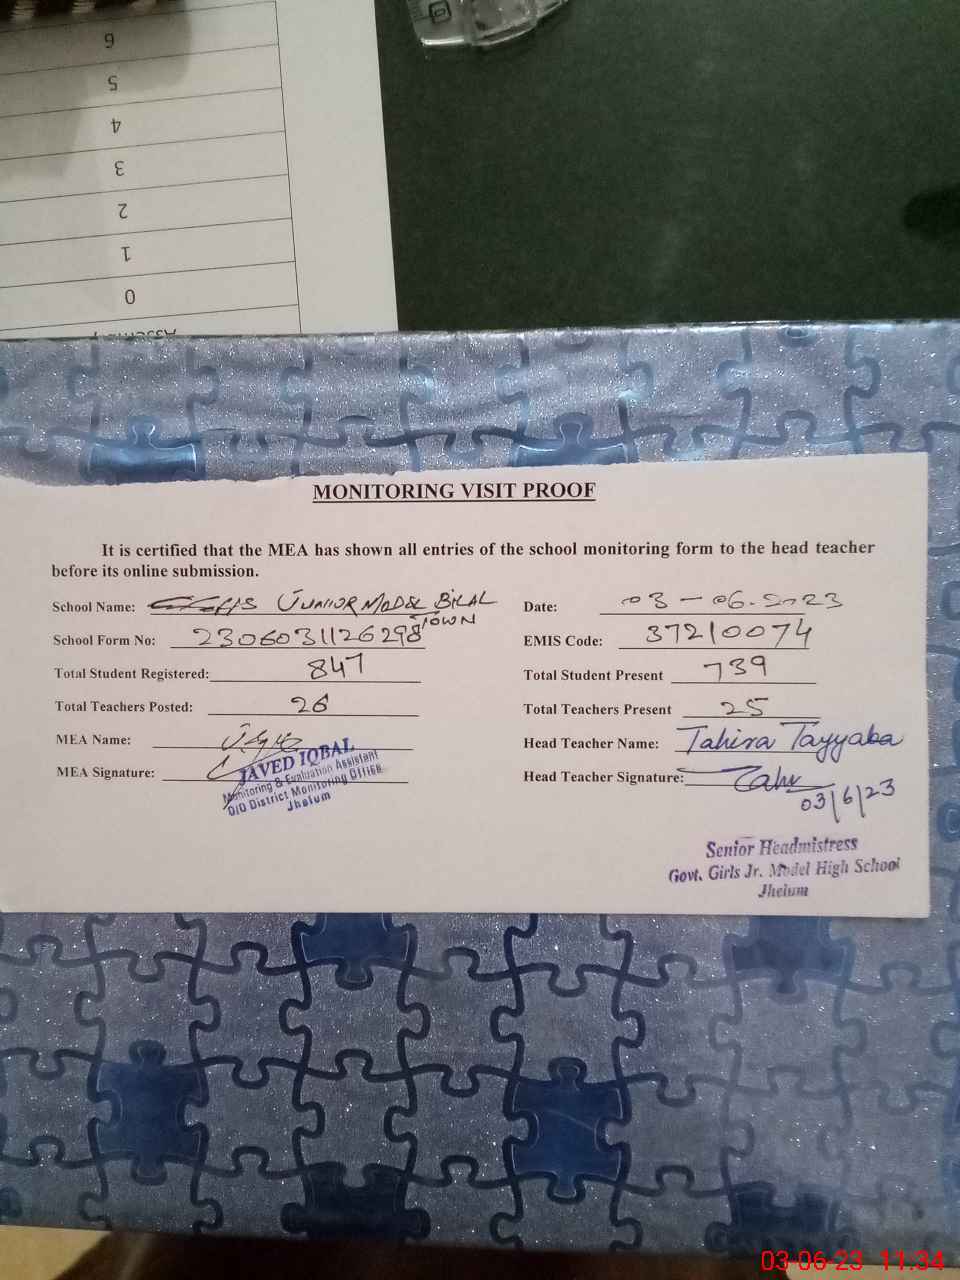 6
5
4
3
2
1
0
MONITORING VISIT PROOF
It is certified that the MEA has shown all entries of the school monitoring form to the head teacher
before its online submission.
School Name: JUNIOR MODEL BILAL
TOWN
Date: 03-06-2023
School Form No: 2306031126298
EMIS Code: 37210074
Total Student Registered: 847
Total Student Present 739
Total Teachers Posted: 26
Total Teachers Present 25
MEA Name:
Head Teacher Name: Tahira Tayyaba
MEA Signature:
Head Teacher Signature:
03/6/23
JAVED IQBAL
Monitoring & Evaluation Assistant
O/O District Monitoring Office
Jhelum
Senior Headmistress
Govt. Girls Jr. Model High School
Jhelum
03-06-23 11:34